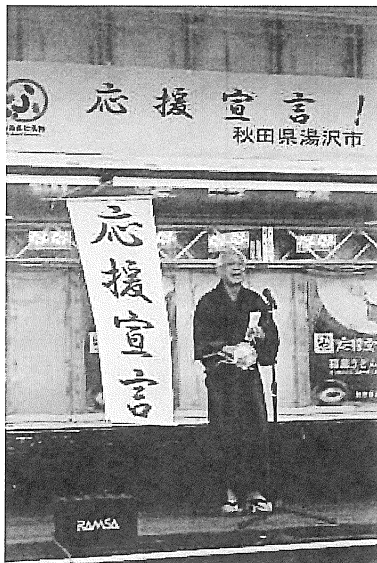 応援宣言!
秋田県湯沢市
応援宣言
RAMSA